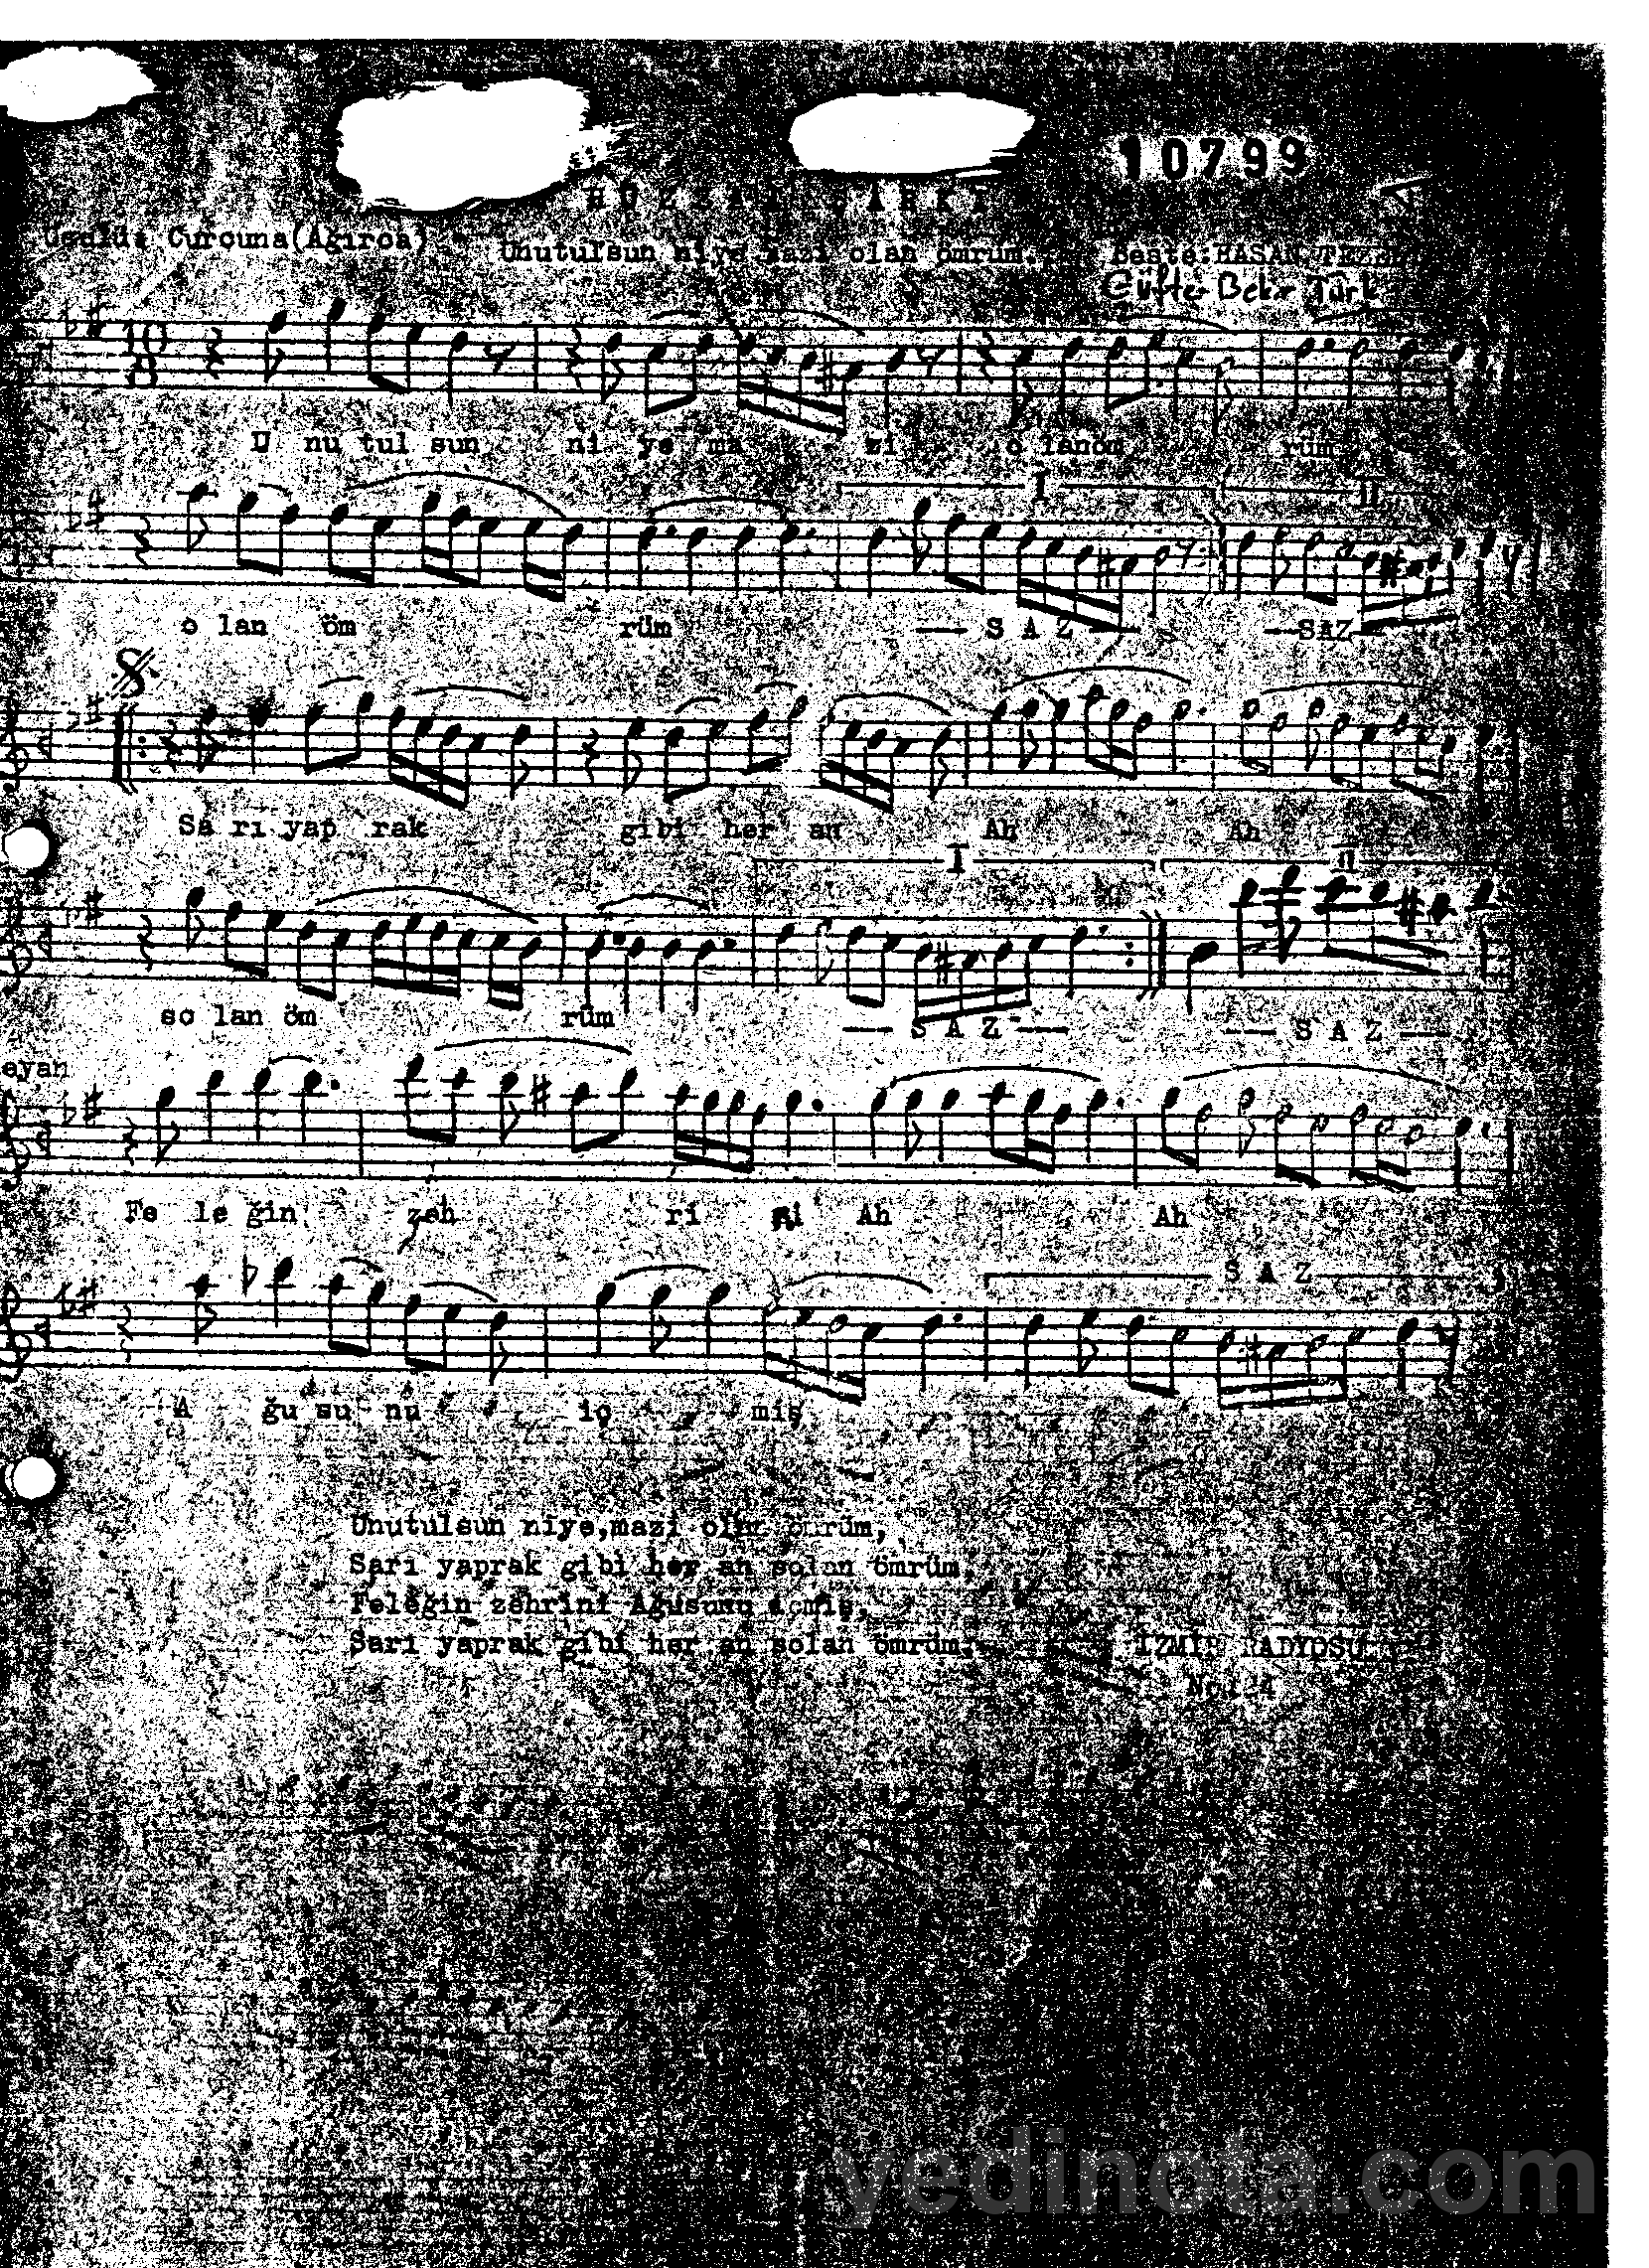 10799
HÜZZAM ŞARKI
Usulü: Curcuna(Ağırca)
Unutulsun niye mazi olan ömrüm.
Beste:HASAN
Güfte: Bekir Türk
10
U nu tul sun ni ye ma zi o lan öm rüm
I II
o lan öm rüm — S A Z — —SAZ—
Sa rı yap rak gibi her an Ah Ah
I II
so lan öm rüm — S A Z — — S A Z —
eyan
Fe le ğin zeh ri ni Ah Ah
S A Z
A ğu su nu iç miş
Unutulsun niye,mazi olan ömrüm,
Sarı yaprak gibi her an solan ömrüm,
Feleğin zehrini Ağusunu içmiş,
Sarı yaprak gibi her an solan ömrüm.
İZMİR RADYOSU
yedinota.com